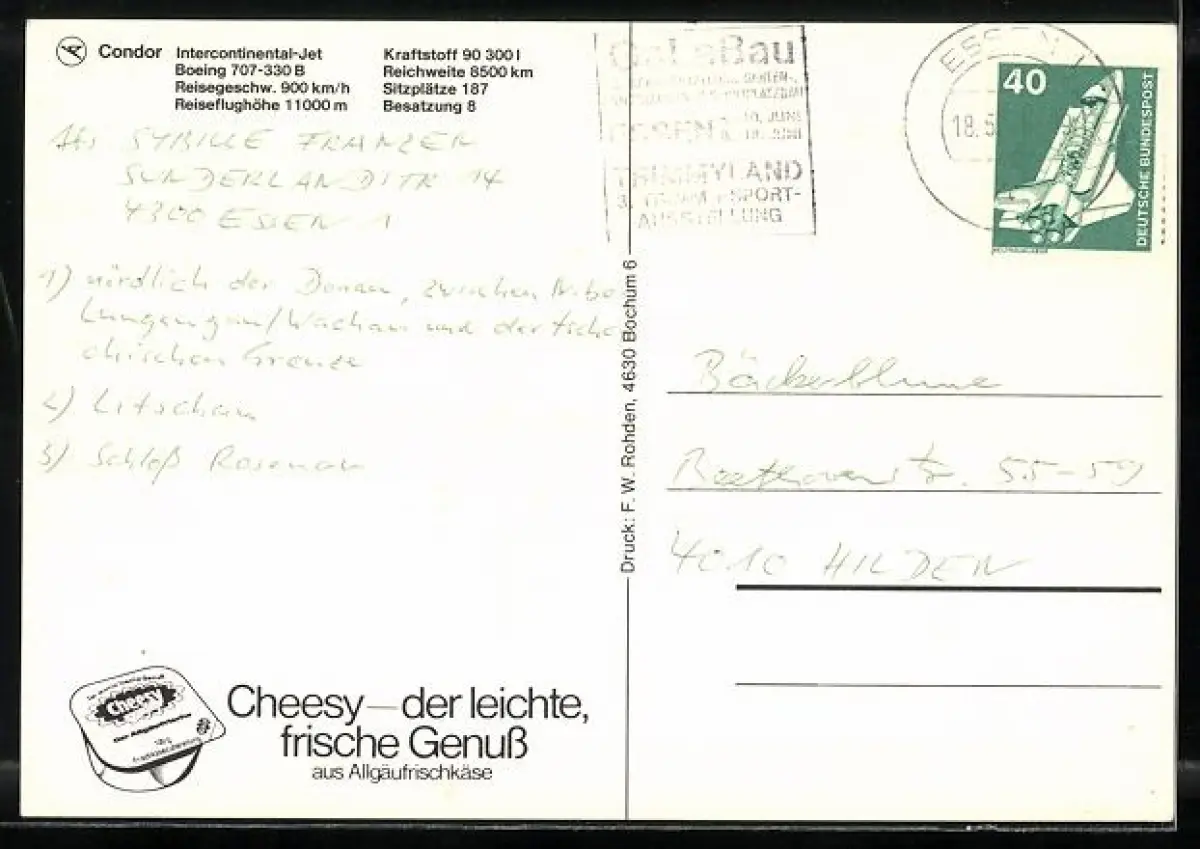 Condor
Intercontinental-Jet
Boeing 707-330 B
Reisegeschw. 900 km/h
Reiseflughöhe 11000 m
Kraftstoff 90 300 l
Reichweite 8500 km
Sitzplätze 187
Besatzung 8
SYBILLE FRANZEN
4300 ESSEN 1
1) nördlich der Donau, zwischen Nibe
lungengau/Wachau und der tsche
chischen Grenze
2) Litschau
3) Schloß Rosenau
Cheesy
Cheesy — der leichte,
frische Genuß
aus Allgäufrischkäse
Druck: F. W. Rohden, 4630 Bochum 6
GaLaBau
ESSEN
TRIMMYLAND
SPORT-
AUSSTELLUNG
ESSEN
18.5
40
DEUTSCHE BUNDESPOST
Bäckerblume
Beethovenstr. 55-59
4010 HILDEN